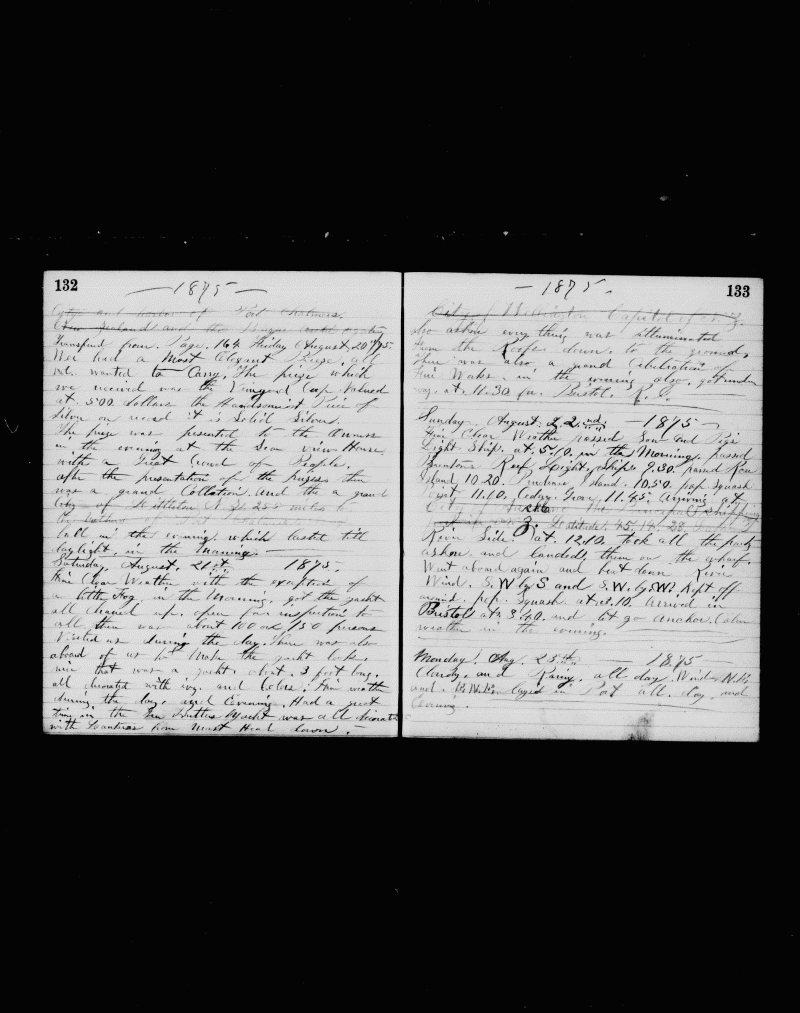 132
— 1875 —
City and harbor of Port Chalmers.
New Zealand and the
Transferd from. Page. 164 Friday August. 20th/75.
Wee had a Most Elegant Prize, all
we wanted to Carry. The prize which
we received was the Vineyard Cup. Valued
at. 500 dollars the Handsomest Piece of
Silver on record it is Solid Silver.
The prize was presented to the Owners
in the evening at the Sea view House
with a Great Crowd of People.
after the presentation of the prizes ther
was a grand Collation. and the a grand
City of Littleton N.Z. 238 miles to
ball in the evening which lasted till
daylight, in the Morning —
Saturday. August. 21st. 1875.
Fine Clear Weather with the exception of
a little Fog. in the Morning, got the yacht
all cleaned up. open for inspection to
all, ther was about 100 or 150 persons
Visited us during the day. There was also
aboard of us to Make the yacht look.
nice that was a yacht. about. 3 foot long.
all decorated with and Colors. Fine weather
during the day, and Evening. Had a great
time in the Yacht was all decorated
with Lanterns from Mast Head down. —
133
— 1875.
City of Wellington Capitol of N.Z.
also ashore every thing was illuminated
from the Roofs down. to the ground,
Ther was also a grand Celibration of
Fire Waks. in the evening also. got under
way. at. 11.30 for. Bristol. R.I.
Sunday. August. 22nd — 1875 —
Fine Clear Weather passed Sow and Pigs
Light Ship. at. 5.10. in the Morning. passed
Brentons Reef Light Ship. 9.30. passed Rose
Island 10.20. Prudence Island. 10.50. pop Squash
Point 11.10. Ceday Grove, 11.45. Arriving at
City of the Principal Shipping
Latitude. 45.14. 28.
River Side. at. 12.10. took all the party
ashore. and landed, them on the wharf.
Went aboard again and beat down River
Wind. S.W by S and S.W. by.W. Kept off
around. pop. Squash. at. 3.10. arrived in
Bristol at. 3.40. and let go anchor. Calm
weather in the evening.
Monday. Aug. 23th — 1875
Cloudy. and Rainy. all day. Wind. N.E.
and. layed in Port all. day. and
Evening.